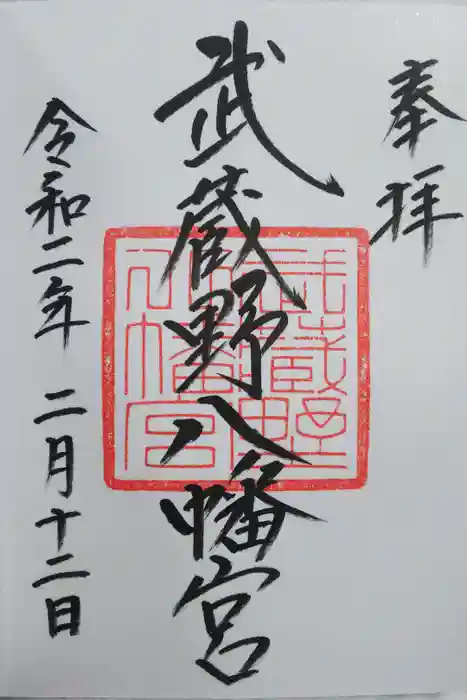 奉拝
武蔵野八幡宮
武蔵野八幡宮
令和二年 二月十二日